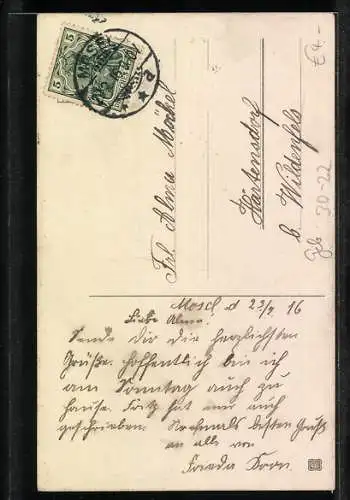 5
Frl Alma Möckel
Härtensdorf
b. Wildenfels
30-22
Mosel d 23/ 16
Liebe Alma.
Sende Dir die herzlichsten
Grüße. hoffentlich bin ich
am Sonntag auch zu
hause. Fritz hat mir auch
geschrieben. Nochmals besten Gruß
an alle von
Frieda